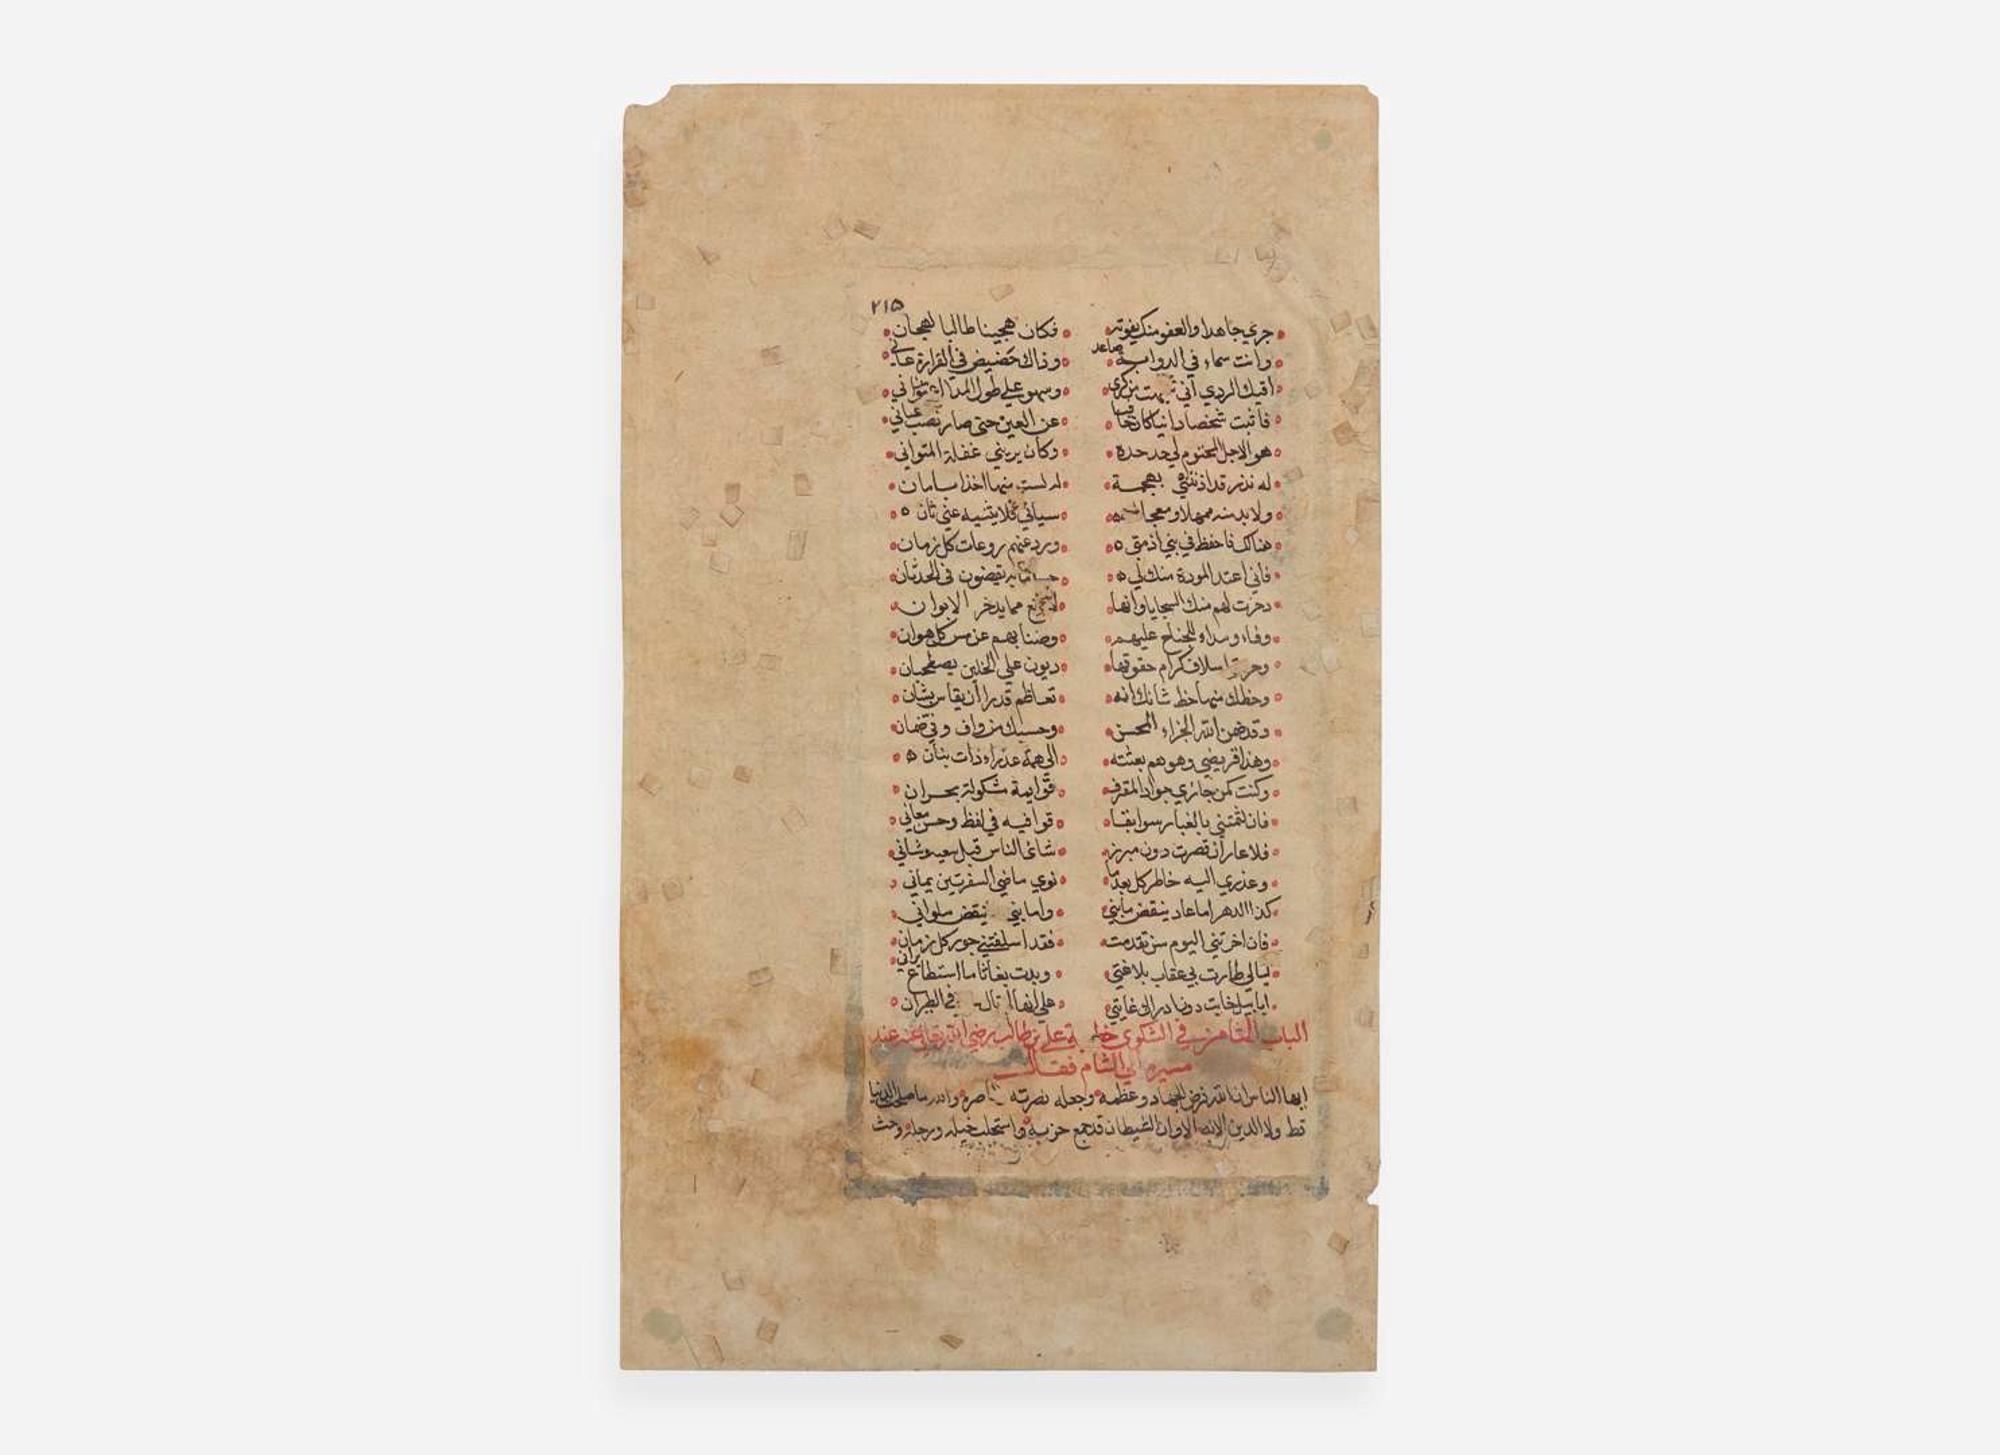 ٢١٥
جري جاهدا والعفو منك يفوته فكان هجينا طالبا لهجان
وانت سماء في الدوابة صاعد وذاك حضيض في القرارة عاني
اقيك الردي أني من كري وسهو علي طول المدا
فاثبت شخصا دانيا كان خافيا عن العين حتى صار نصب عياني
هو الاجل المحتوم لي جد جده وكان يريني غفلة المتواني
له نذر قد اذنتني بهجمة له لست منها اخذا بامان
ولا بد منه ممهلا او معجا سياتي فلا يثنيه عني ثان
هنالك فاحفظ في بني اذمتي ورد عنهم روعات كل زمان
فاني اعتد المودة منك لي حساما به تقيضون في الحدثان
دخرت لهم منك السجايا وانها مما يدخر الابوان
وفاء ومداء للجناح عليهم وضنا بهم عن مس كل هوان
اسلاف كرام حقوقها ديون علي الخلين يصطحبان
وحظك منها حظ شانك انه تعاظم قدرا أن يقاس بشان
وقد ضمن الله الجزاء لمحسن وحسبك من واف وفي ضمان
وهذا قريضي وهو هم بعثته الى همة عذراء ذات بنان
وكنت كمن جاري جواد المقرف قوايمة شكولة بحران
فان لثمتني بالغبار سوابقا قوافيه في لفظ وحسن معاني
فلا عار أن قصرت دون مبرز شاى الناس قبل سعيه وشاني
وعذري اليه خاطر كل بعدما نوي ماضي السفرتين يماني
كذا الدهر اما عاد ينقض ما بني واما بني ينقض ملواني
فان اخرتني اليوم سن تقدمت فقد اسلفتني جور كل زمان
ليالي طارت بي عقاب بلاغتي وبدت بغاثا ما استطاع يراني
ابابيل خابت دون ادراك غايتي علي انها في الطيران
الباب الثامن في الشكوي خطبة علي بن طالب رضي الله تعالى عنه عند
مسيره الي الشام فقال
ايها الناس ان الله فرض الجهاد وعظمه وجعله نصرته ناصره والله ما صلحت الدنيا
قط ولا الدين الا به الا وان الشيطان قد جمع حزبه واستجلب خيله ورجله وحث